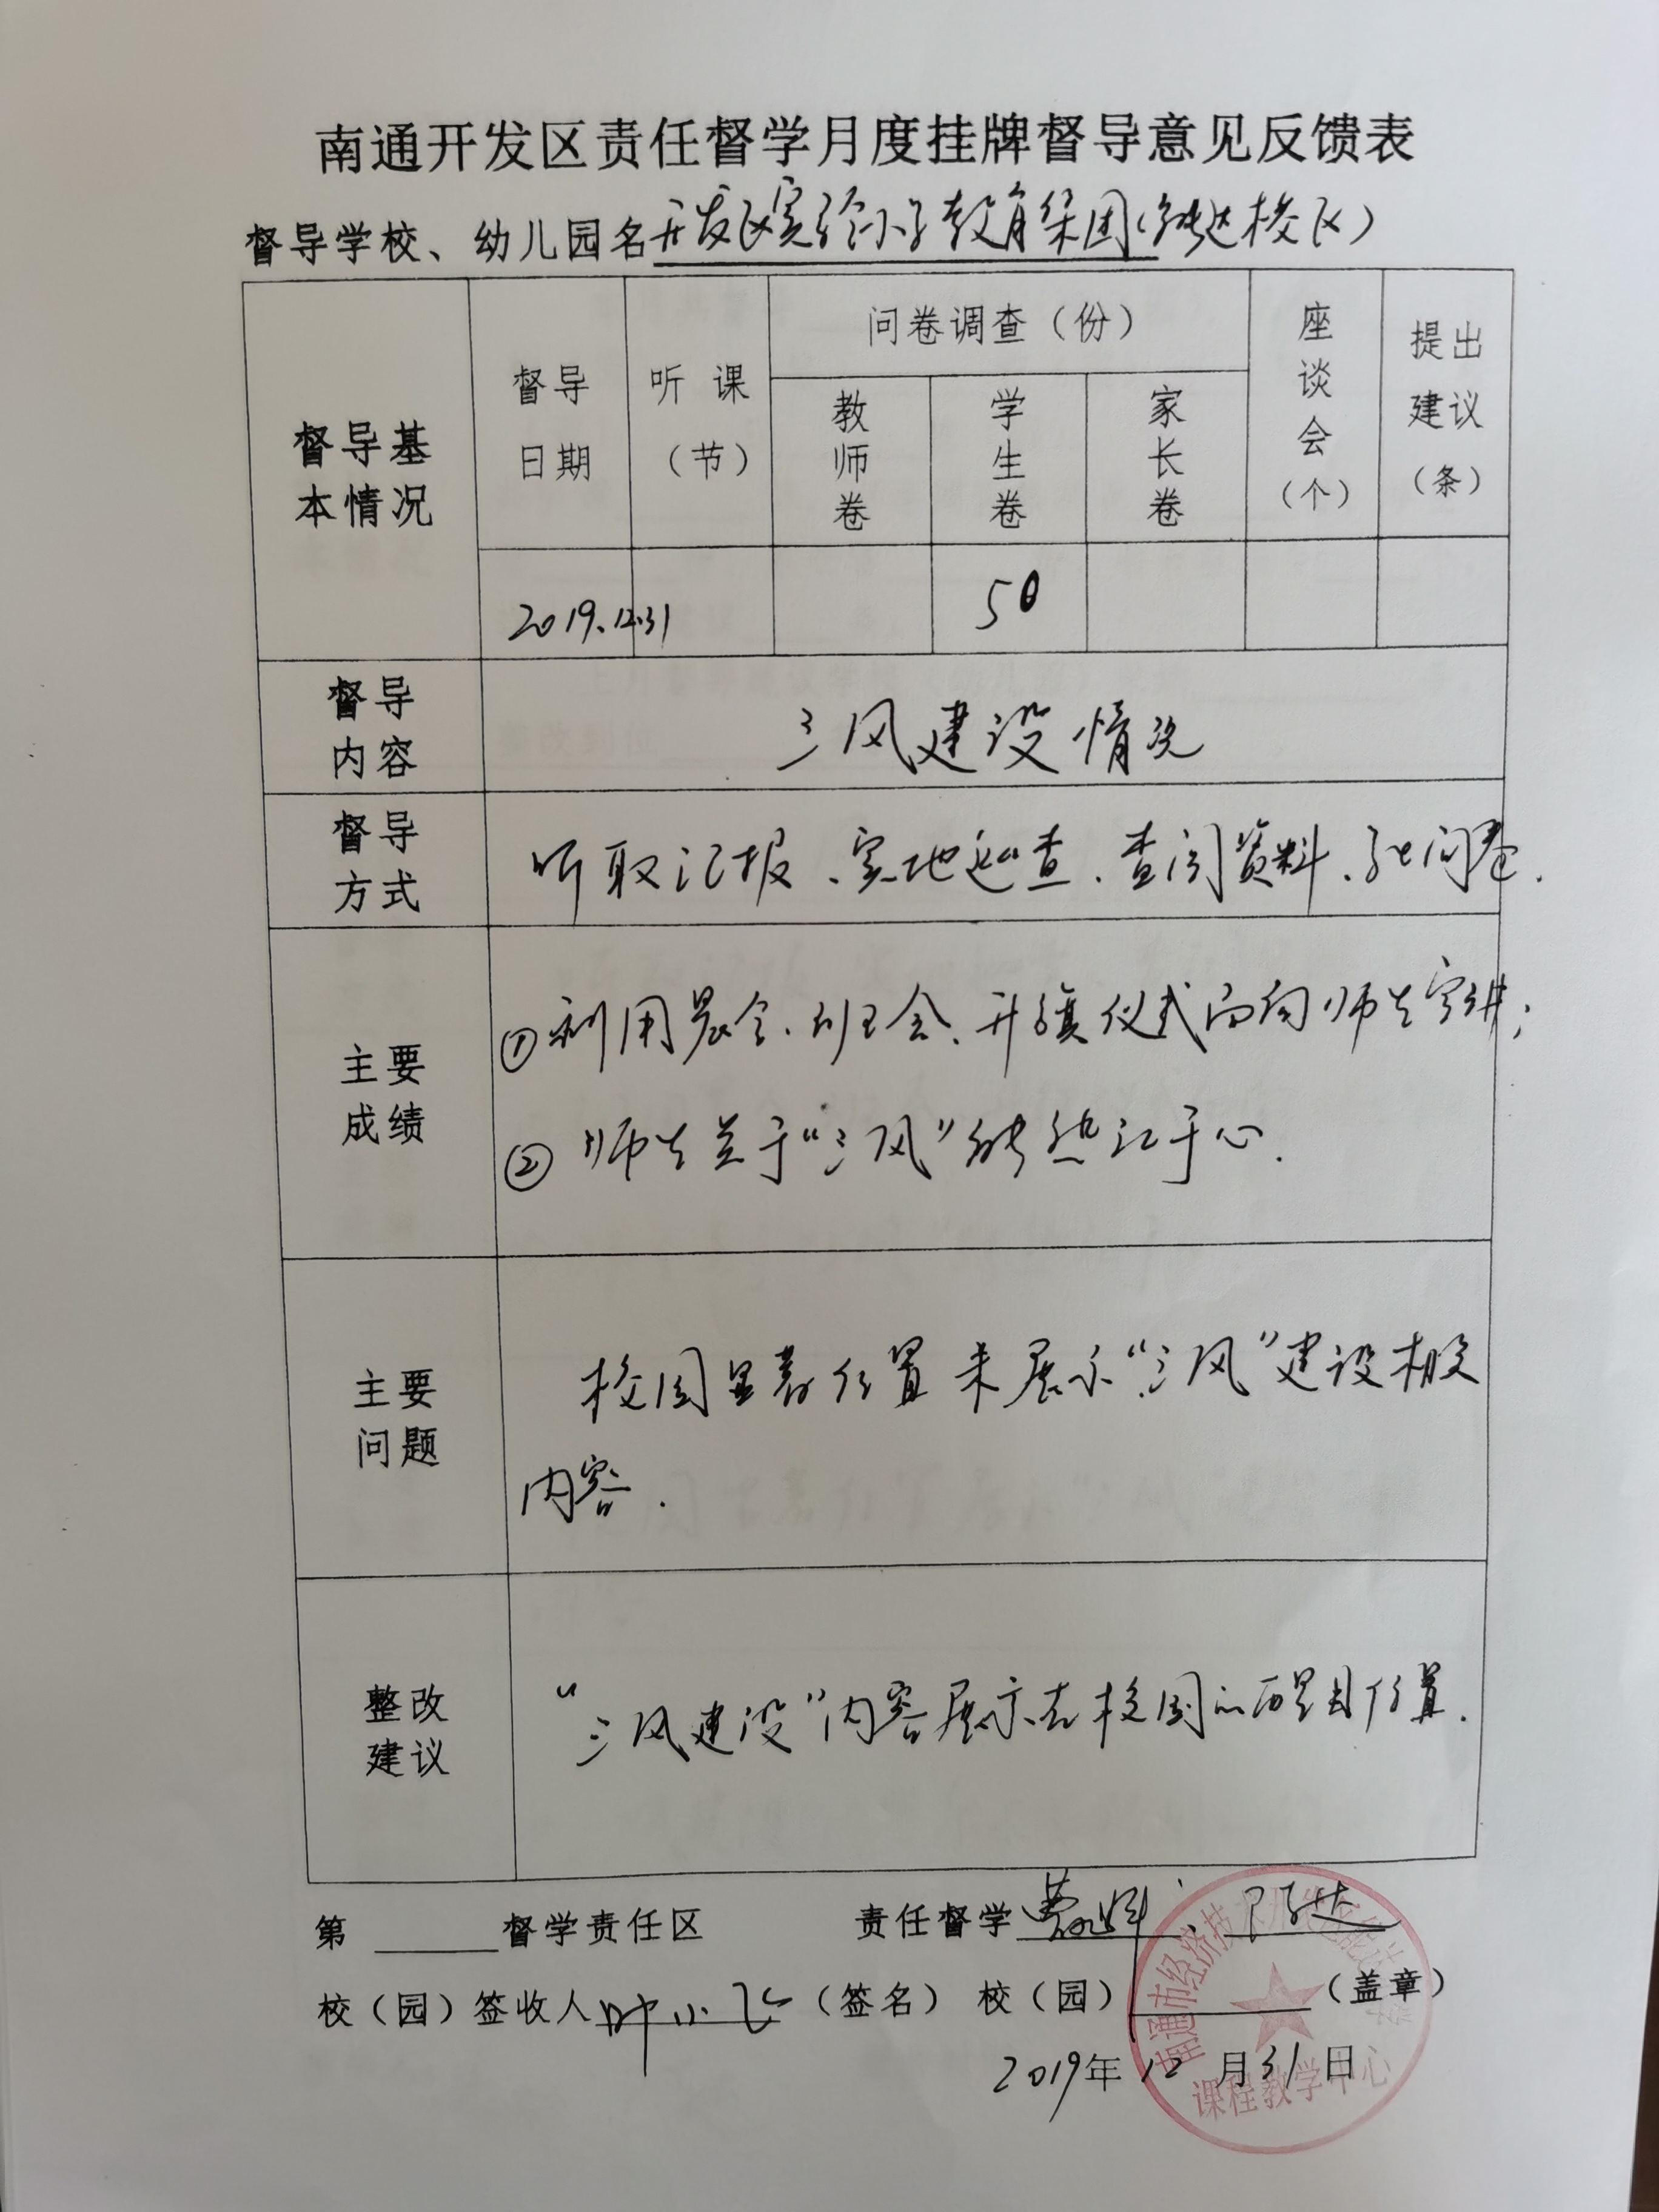 南通开发区责任督学月度挂牌督导意见反馈表
督导学校、幼儿园名开发区实验小学教育集团(能达校区)
督导基本情况
督导日期
听课(节)
问卷调查(份)
教师卷
学生卷
家长卷
座谈会(个)
提出建议(条)
2019.12.31
50
督导内容
三风建设情况
督导方式
听取汇报、实地巡查、查阅资料、 问卷.
主要成绩
①利用晨会、班会、升旗仪式面向师生宣讲;
②师生关于“三风”能熟记于心.
主要问题
校园显著位置未展示“三风”建设相关
内容.
整改建议
“三风建设”内容展示在校园的醒目位置.
第 督学责任区 责任督学
校(园)签收人叶小飞(签名) 校(园) (盖章)
2019年12月31日
南通市经济技术开发区能达小学
课程教学中心